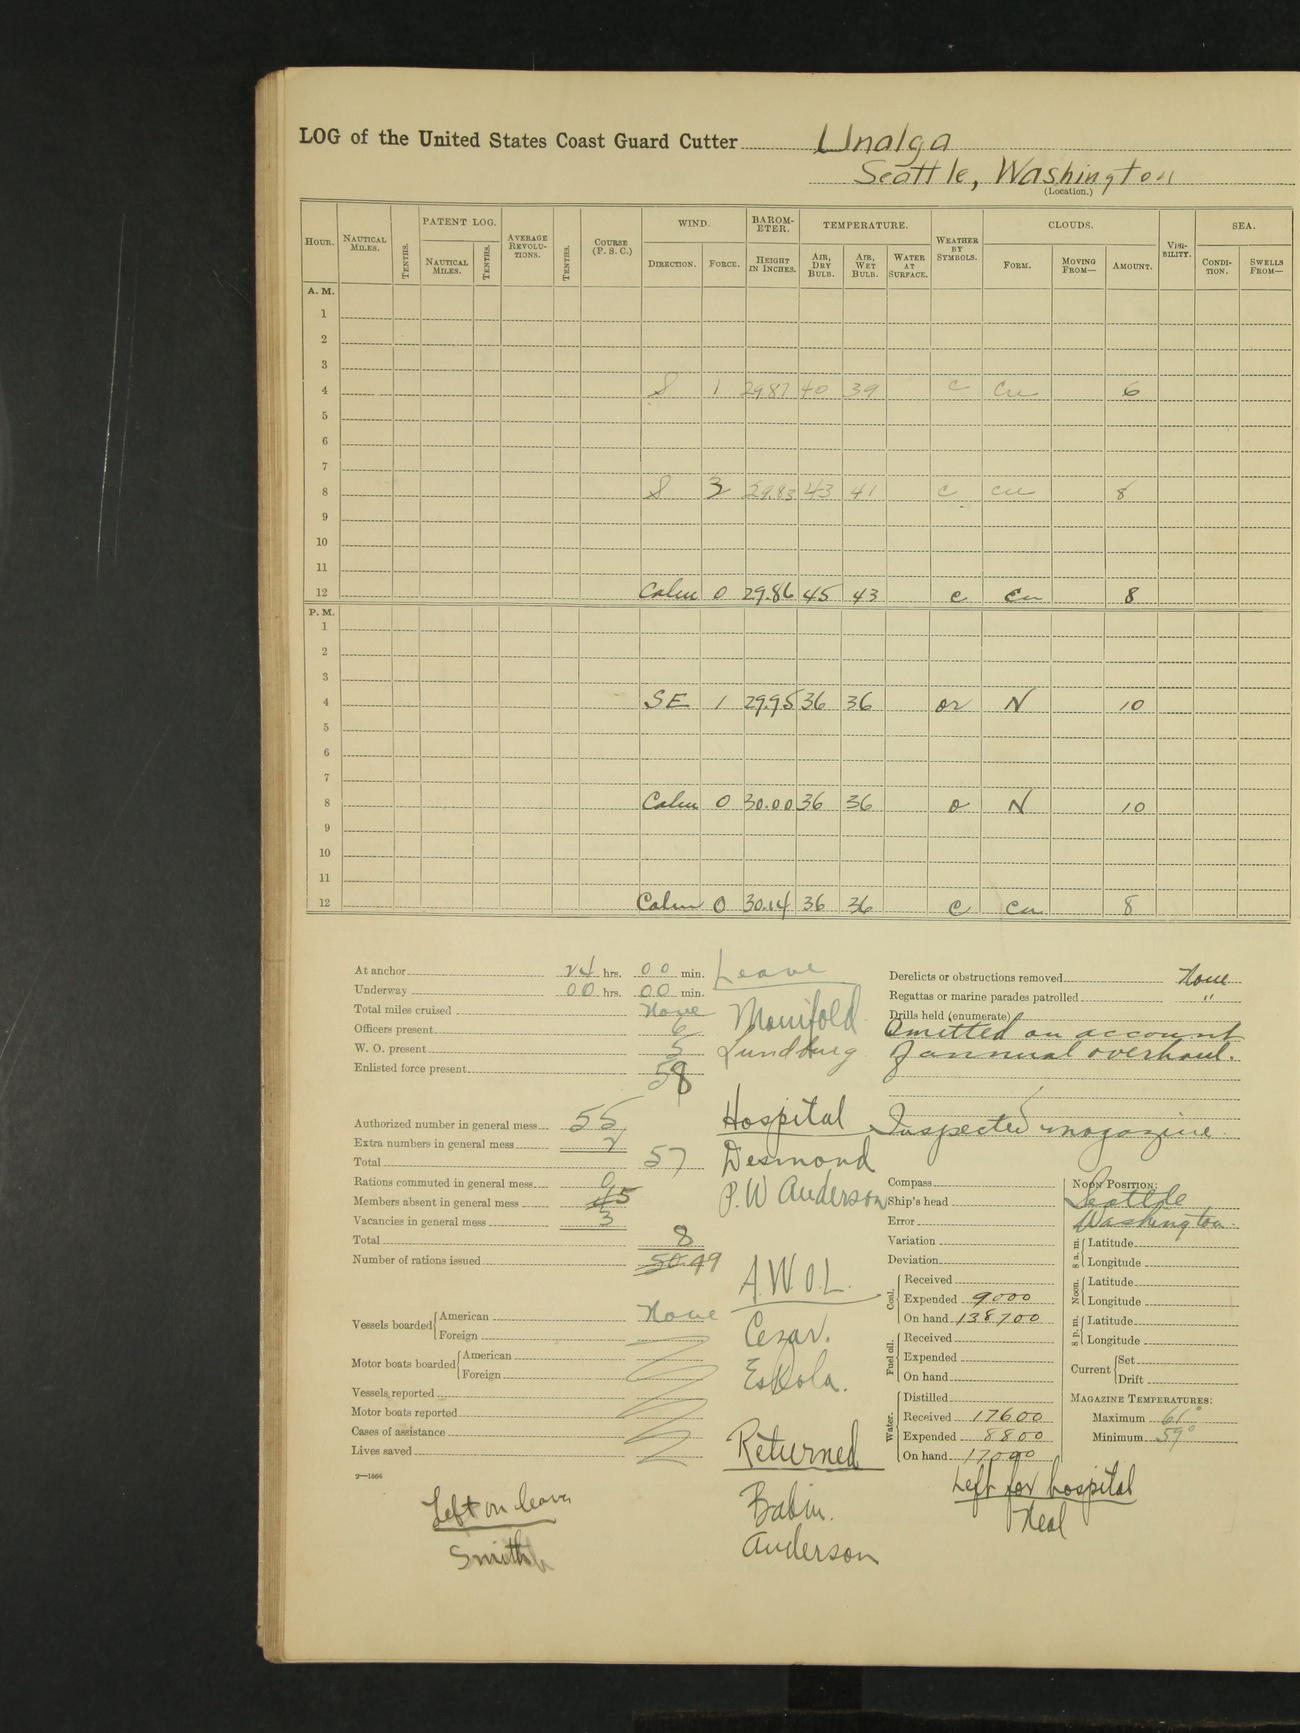 LOG of the United States Coast Guard Cutter Unalga
Seattle, Washington
(Location.)
HOUR. NAUTICAL MILES. TENTHS. PATENT LOG. NAUTICAL MILES. TENTHS. AVERAGE REVOLUTIONS. TENTHS. COURSE (P. S. C.) WIND. DIRECTION. FORCE. BAROMETER. HEIGHT IN INCHES. TEMPERATURE. AIR, DRY BULB. AIR, WET BULB. WATER AT SURFACE. WEATHER BY SYMBOLS. CLOUDS. FORM. MOVING FROM— AMOUNT. VISIBILITY. SEA. CONDITION. SWELLS FROM—
A. M.
1
2
3
4 S 1 29.87 40 39 c Cu 6
5
6
7
8 S 3 29.83 43 41 c cu 8
9
10
11
12 Calm 0 29.86 45 43 c Cu 8
P. M.
1
2
3
4 SE 1 29.95 36 36 or N 10
5
6
7
8 Calm 0 30.00 36 36 o N 10
9
10
11
12 Calm 0 30.14 36 36 c cu 8
At anchor 24 hrs. 00 min.
Underway 00 hrs. 00 min.
Total miles cruised None
Officers present 6
W. O. present 5
Enlisted force present 58
Authorized number in general mess 55
Extra numbers in general mess 2
Total 57
Rations commuted in general mess 0
Members absent in general mess 5
Vacancies in general mess 3
Total 8
Number of rations issued 50 49
Vessels boarded American None
Foreign
Motor boats boarded American
Foreign
Vessels reported
Motor boats reported
Cases of assistance
Lives saved
2—1864
Left on leave
Smith
Leave
Manifold
Lundburg
Hospital
Desmond
P. W Anderson
A.W.O.L.
Cezar.
Eskola.
Returned
Babin.
Anderson
Derelicts or obstructions removed None
Regattas or marine parades patrolled "
Drills held (enumerate)
Omitted on account
of annual overhaul.
Inspected magazine
Compass
Ship's head
Error
Variation
Deviation
Coal. Received
Expended 9000
On hand 138700
Fuel oil. Received
Expended
On hand
Water. Distilled
Received 17600
Expended 8800
On hand 17000
Left for hospital
Neal
NOON POSITION:
Seattle
Washington
8 a. m. Latitude
Longitude
Noon. Latitude
Longitude
8 p. m. Latitude
Longitude
Current Set
Drift
MAGAZINE TEMPERATURES:
Maximum 61°
Minimum 59°